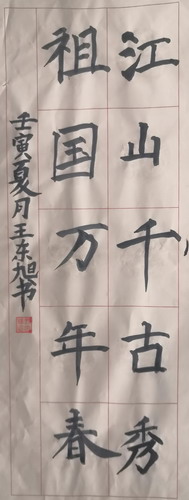 江山千古秀
祖国万年春
壬寅夏月王东旭书